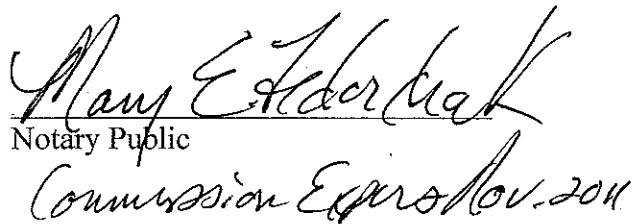 Mary E Fedorchak
Notary Public
Commission Expires Nov. 2011